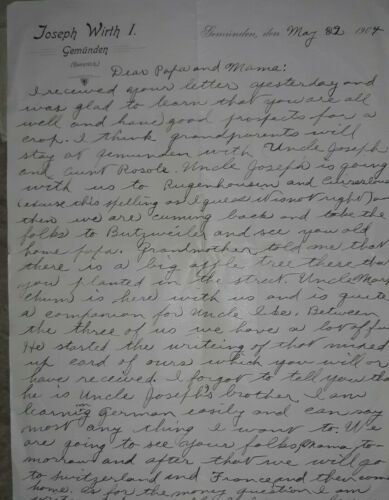 Joseph Wirth I.
Gemünden
Gemünden, den May 22 1904
Dear Papa and Mama:
I received your letter yesterday and
was glad to learn that you are all
well and have good prospects for a
crop. I think grandparents will
stay at Gemunden with Uncle Joseph
and Aunt Rosole. Uncle Joseph is going
with us to Rugenhousen and
(excuse this spelling as I guess it is not right) and
then we are cuming back and take the
folks to Butzweiler and see you old
home papa. Grandmother told me that
there is a big apple tree there that
you planted in the street. Uncle
chum is here with us and is quite
a companion for Uncle Ike. Between
the three of us we have a lot of
He started the writing of that mixed
up card of ours which you will or
have received. I forgot to tell you th
he is Uncle Joseph's brother. I am
learning German easily and can say
most any thing I want to. We
are going to see your folks, Mama, to-
morrow and after that we will go
to Switzerland and France and then com
home. As for the money question I am